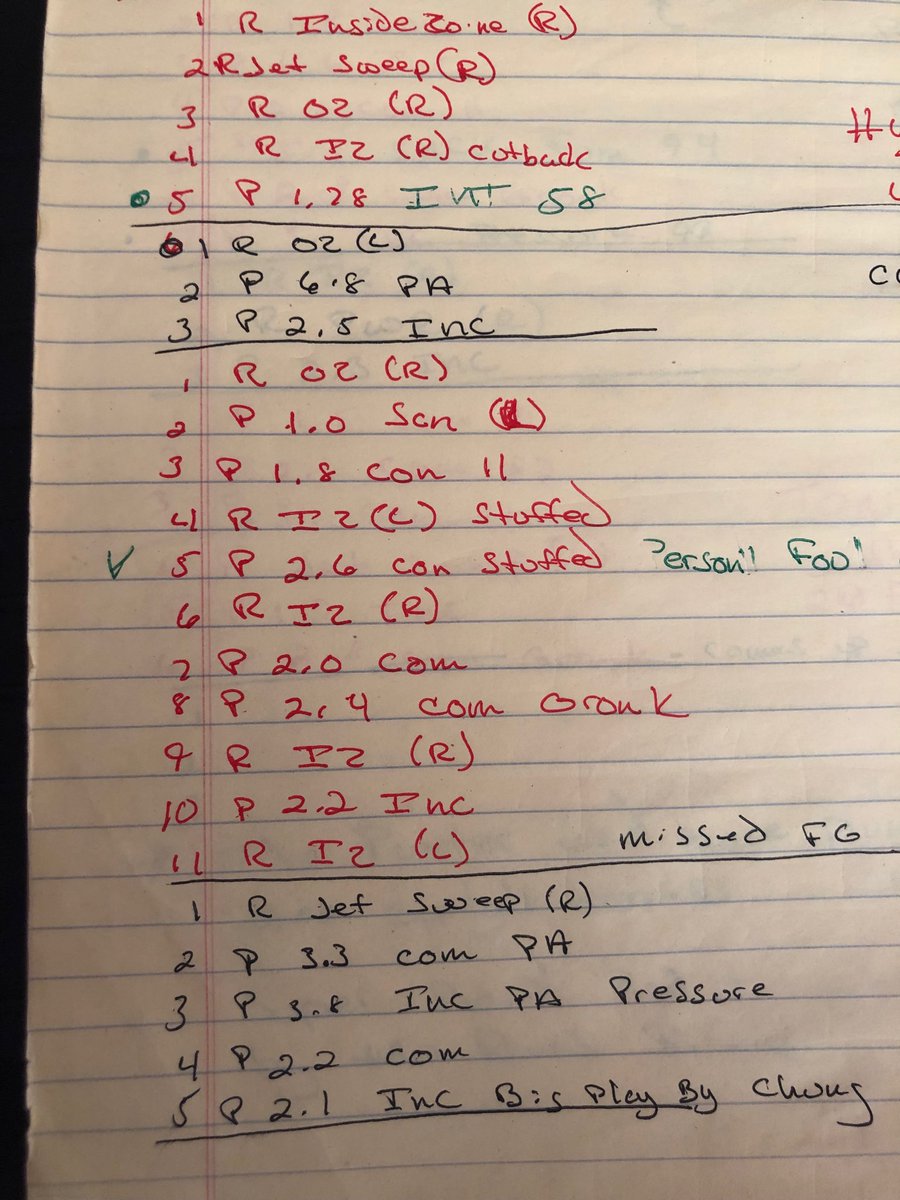 1 R Inside Zone (R)
2 R Jet Sweep (R)
3 R OZ (R)
4 R IZ (R) cutback
5 P 1.28 INT 58
1 R OZ (L)
2 P 6.8 PA
3 P 2.5 Inc
1 R OZ (R)
2 P 1.0 Scn (L)
3 P 1.8 con 11
4 R IZ (L) Stuffed
5 P 2.6 con Stuffed Personl Foul
6 R IZ (R)
7 P 2.0 com
8 P 2.4 com Gronk
9 R IZ (R)
10 P 2.2 Inc
11 R IZ (L) missed FG
1 R Jet Sweep (R)
2 P 3.3 com PA
3 P 3.8 Inc PA Pressure
4 P 2.2 com
5 P 2.1 Inc Big Play By Chung